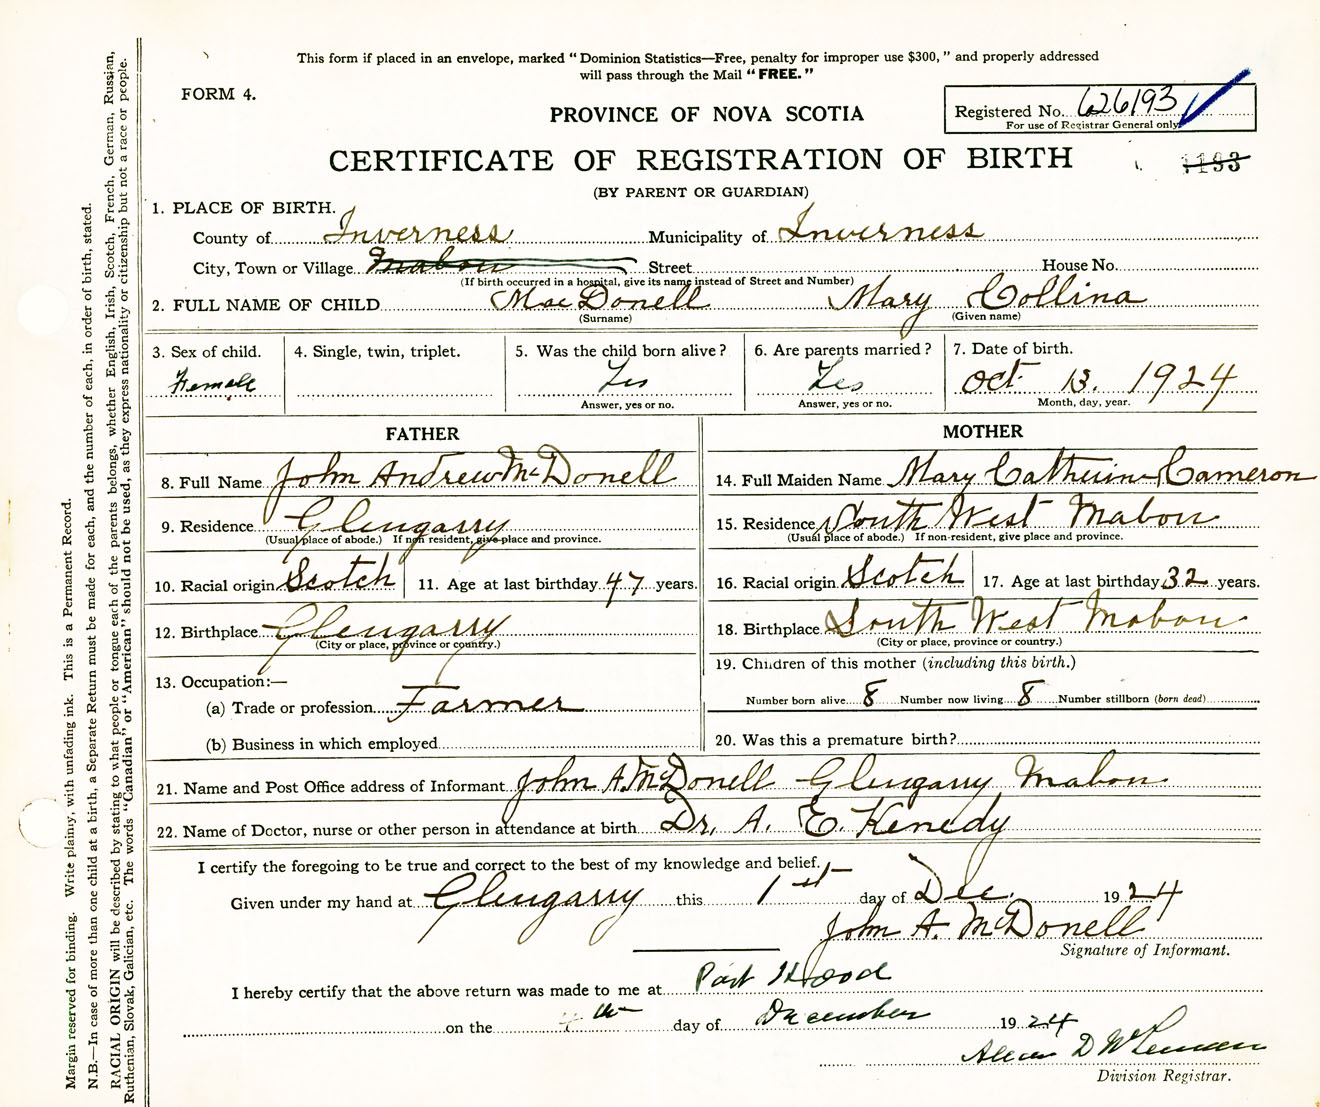 This form if placed in an envelope, marked "Dominion Statistics—Free, penalty for improper use $300," and properly addressed
will pass through the Mail "FREE."
FORM 4.
PROVINCE OF NOVA SCOTIA
Registered No. 626193
For use of Registrar General only
CERTIFICATE OF REGISTRATION OF BIRTH
1193
(BY PARENT OR GUARDIAN)
1. PLACE OF BIRTH.
County of Inverness Municipality of Inverness
City, Town or Village Mabou Street House No.
(If birth occurred in a hospital, give its name instead of Street and Number)
2. FULL NAME OF CHILD MacDonell Mary Collina
(Surname) (Given name)
3. Sex of child. 4. Single, twin, triplet. 5. Was the child born alive? 6. Are parents married? 7. Date of birth.
Female Yes Yes Oct. 13. 1924
Answer, yes or no. Answer, yes or no. Month, day, year.
FATHER
8. Full Name John Andrew McDonell
9. Residence Glengarry
(Usual place of abode.) If non resident, give place and province.
10. Racial origin Scotch 11. Age at last birthday 47 years.
12. Birthplace Glengarry
(City or place, province or country.)
13. Occupation:—
(a) Trade or profession Farmer
(b) Business in which employed
MOTHER
14. Full Maiden Name Mary Catherine Cameron
15. Residence South West Mabou
(Usual place of abode.) If non-resident, give place and province.
16. Racial origin Scotch 17. Age at last birthday 32 years.
18. Birthplace South West Mabou
(City or place, province or country.)
19. Children of this mother (including this birth.)
Number born alive 8 Number now living 8 Number stillborn (born dead)
20. Was this a premature birth?
21. Name and Post Office address of Informant John A. McDonell Glengarry Mabou
22. Name of Doctor, nurse or other person in attendance at birth Dr. A. E. Kenedy
I certify the foregoing to be true and correct to the best of my knowledge and belief.
Given under my hand at Glengarry this 1st day of Dec. 1924
John A. McDonell
Signature of Informant.
I hereby certify that the above return was made to me at Port Hood
on the 4th day of December 1924
D
Division Registrar.
Margin reserved for binding. Write plainly, with unfading ink. This is a Permanent Record.
N.B.—In case of more than one child at a birth, a Separate Return must be made for each, and the number of each, in order of birth, stated.
RACIAL ORIGIN will be described by stating to what people or tongue each of the parents belongs, whether English, Irish, Scotch, French, German, Russian,
Ruthenian, Slovak, Galician, etc. The words "Canadian" or "American" should not be used, as they express nationality or citizenship but not a race or people.